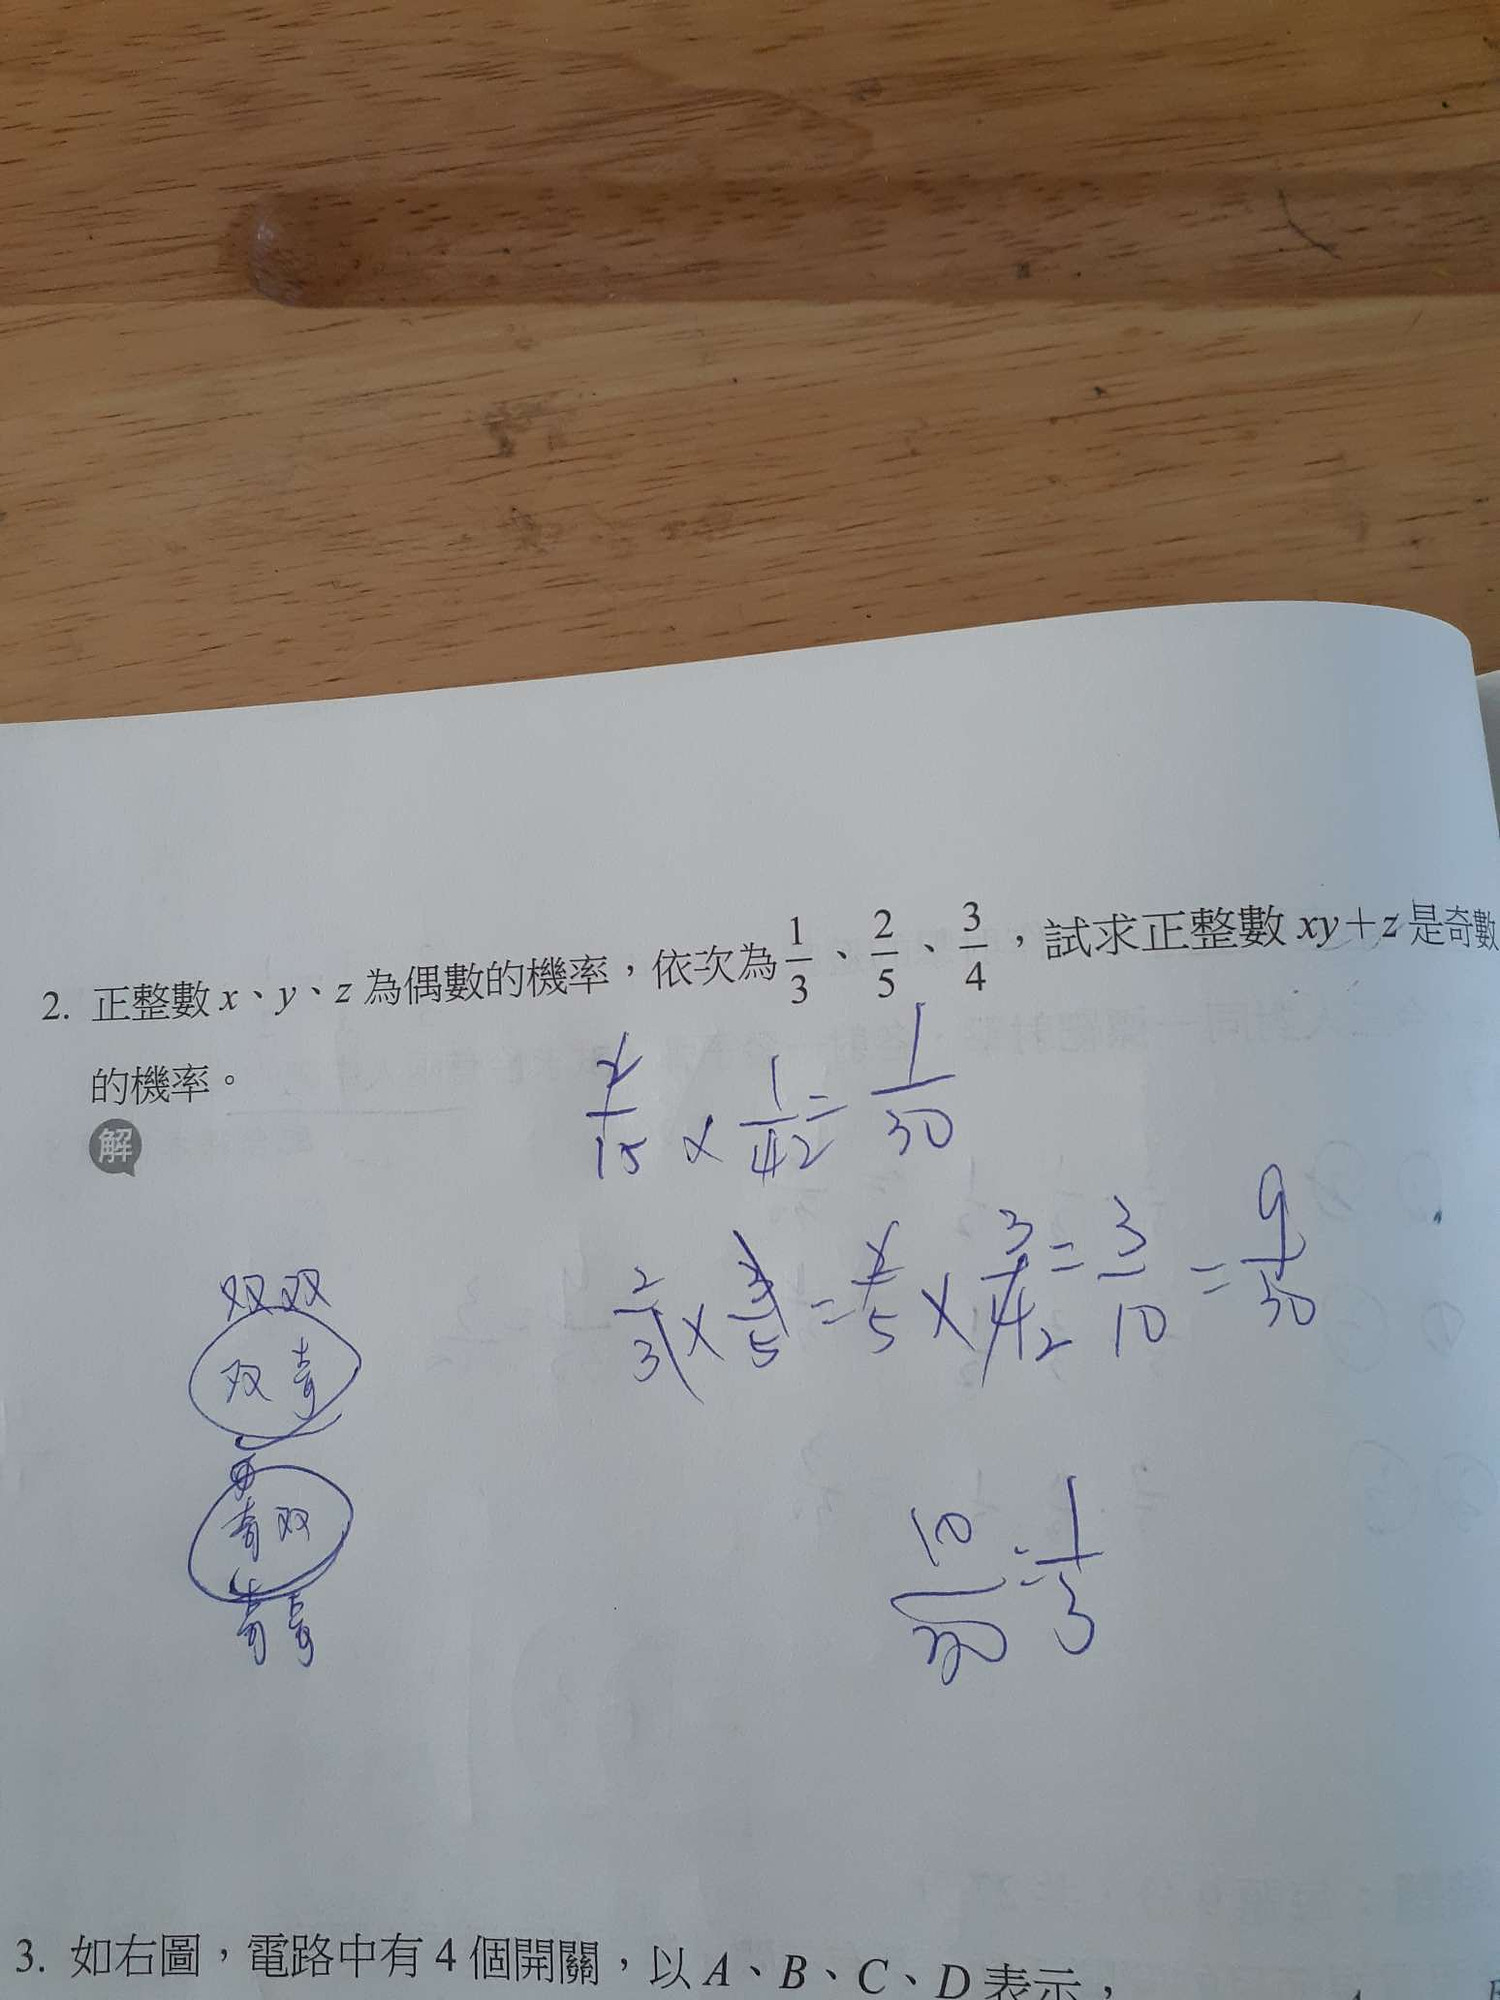 2. 正整數 x、y、z 為偶數的機率，依次為 1/3、2/5、3/4，試求正整數 xy+z 是奇數
的機率。
解
2/15 × 1/42 = 1/30
2/3 × 3/5 = 2/5 × 3/42 = 3/10 = 9/30
双双
双奇
奇双
奇奇
10/30 = 1/3
3. 如右圖，電路中有 4 個開關，以 A、B、C、D 表示，